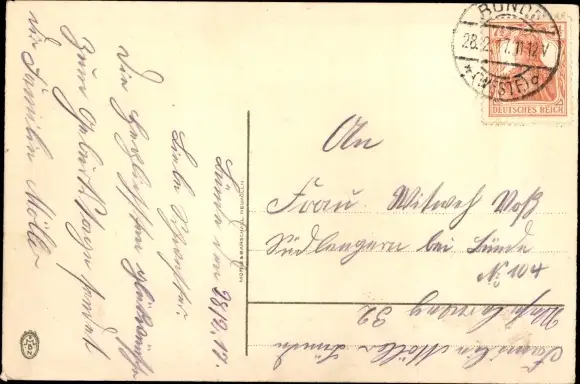 BÜNDE
28.2.17.11-12V
*(WESTF)*
DEUTSCHES REICH
An
Frau Witweh Voß
Südlengern bei Bünde
No 104
Bünde den 28/2.17.
Liebe Schwester.
Die herzlichsten Glückwünsche
Zum Geburtstage sendet
die Familie Möller
Familie Möller Bünde
32